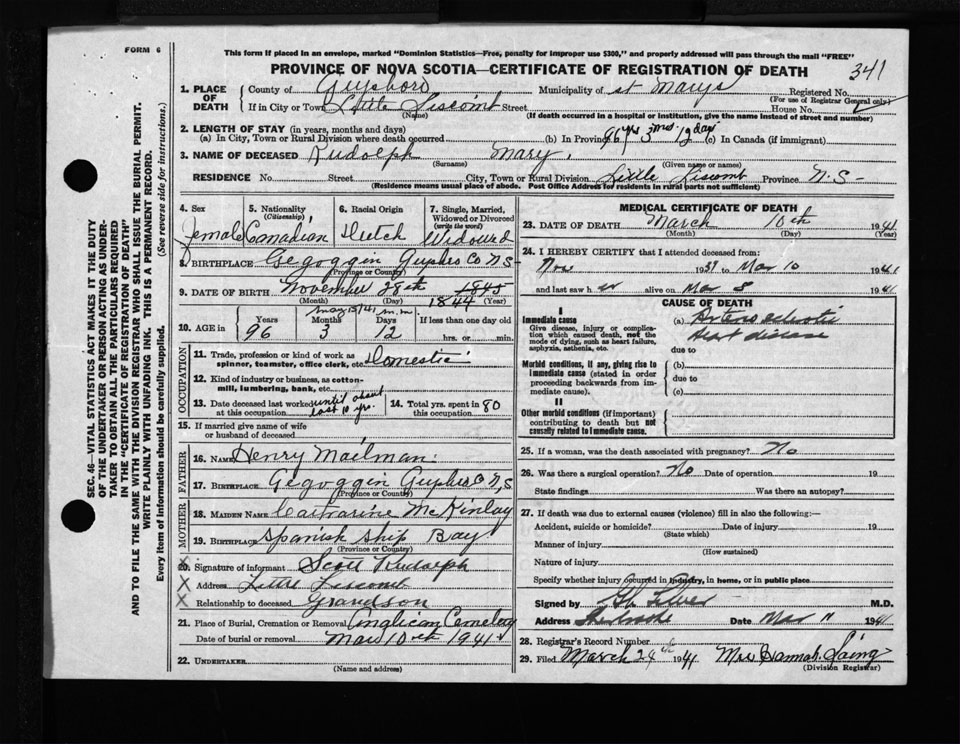 FORM 6
This form if placed in an envelope, marked "Dominion Statistics—Free, penalty for improper use $300," and properly addressed will pass through the mail "FREE"
PROVINCE OF NOVA SCOTIA—CERTIFICATE OF REGISTRATION OF DEATH
341
1. PLACE OF DEATH
County of Guysboro Municipality of St Marys Registered No.
(For use of Registrar General only)
If in City or Town Little Liscomb Street House No.
(Name) (If death occurred in a hospital or institution, give the name instead of street and number)
2. LENGTH OF STAY (in years, months and days)
(a) In City, Town or Rural Division where death occurred (b) In Province 96 yrs 3 mos 12 days (c) In Canada (if immigrant)
3. NAME OF DECEASED Rudolph Mary
(Surname) (Given name or names)
RESIDENCE No. Street City, Town or Rural Division Little Liscomb Province N.S—
(Residence means usual place of abode. Post Office Address for residents in rural parts not sufficient)
4. Sex female
5. Nationality (Citizenship) Canadian
6. Racial Origin Dutch
7. Single, Married, Widowed or Divorced (write the word) Widowed
8. BIRTHPLACE Gegoggin Guysbro Co N S
(Province or County)
9. DATE OF BIRTH November 28th 1845 1844
(Month) (Day) (Year)
may 15/41 m.m.
10. AGE in Years 96 Months 3 Days 12 If less than one day old
hrs. or min.
OCCUPATION
11. Trade, profession or kind of work as spinner, teamster, office clerk, etc. Domestic
12. Kind of industry or business, as cotton-mill, lumbering, bank, etc.
13. Date deceased last worked at this occupation until about last 10 yrs.
14. Total yrs. spent in this occupation 80
15. If married give name of wife or husband of deceased
FATHER
16. NAME Henry Mailman
17. BIRTHPLACE Gegoggin Guysbro Co N,S
(Province or County)
MOTHER
18. MAIDEN NAME Catharine McKinlay
19. BIRTHPLACE Spanish Ship Bay
(Province or Country)
20. Signature of informant Scott Rudolph
X Address Little Liscomb
X Relationship to deceased Grandson
21. Place of Burial, Cremation or Removal Anglican Cemetery
Date of burial or removal 10th 1941
22. UNDERTAKER
(Name and address)
MEDICAL CERTIFICATE OF DEATH
23. DATE OF DEATH March 10th 1941
(Month) (Day) (Year)
24. I HEREBY CERTIFY that I attended deceased from:
Nov 1937 to Mar 10 1941
and last saw her alive on Mar 8 1941
CAUSE OF DEATH
I
Immediate cause (a) Arterosclerotic
Heart disease
Give disease, injury or complication which caused death, not the mode of dying, such as heart failure, asphyxia, asthenia, etc.
due to
Morbid conditions, if any, giving rise to immediate cause (stated in order proceeding backwards from immediate cause).
(b)
due to
(c)
II
Other morbid conditions (if important) contributing to death but not causally related to immediate cause.
25. If a woman, was the death associated with pregnancy? No
26. Was there a surgical operation? No Date of operation 19
State findings Was there an autopsy?
27. If death was due to external causes (violence) fill in also the following:—
Accident, suicide or homicide? Date of injury 19
(State which)
Manner of injury
(How sustained)
Nature of injury
Specify whether injury occurred in industry, in home, or in public place
Signed by M.D.
Address Sherbrooke Date Mar 11 1941
28. Registrar's Record Number
29. Filed March 24th 1941 Mrs Hannah Laing
(Division Registrar)
SEC. 46—VITAL STATISTICS ACT MAKES IT THE DUTY
OF THE UNDERTAKER OR PERSON ACTING AS UNDERTAKER
TO OBTAIN ALL THE PARTICULARS REQUIRED
IN THE "CERTIFICATE OF REGISTRATION OF DEATH"
AND TO FILE THE SAME WITH THE DIVISION REGISTRAR WHO SHALL ISSUE THE BURIAL PERMIT.
WRITE PLAINLY WITH UNFADING INK. THIS IS A PERMANENT RECORD.
Every item of information should be carefully supplied. (See reverse side for instructions.)